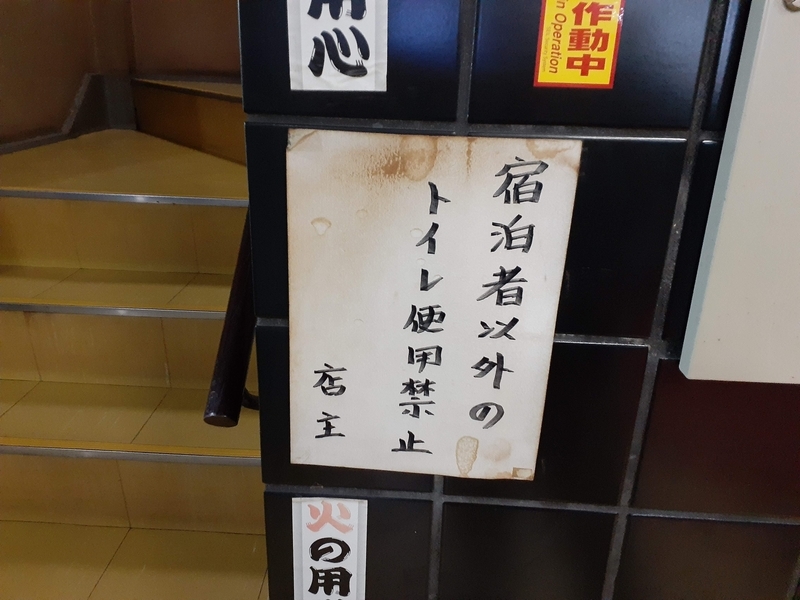 用心
作動中
in Operation
宿泊者以外の
トイレ使用禁止
店主
火の用